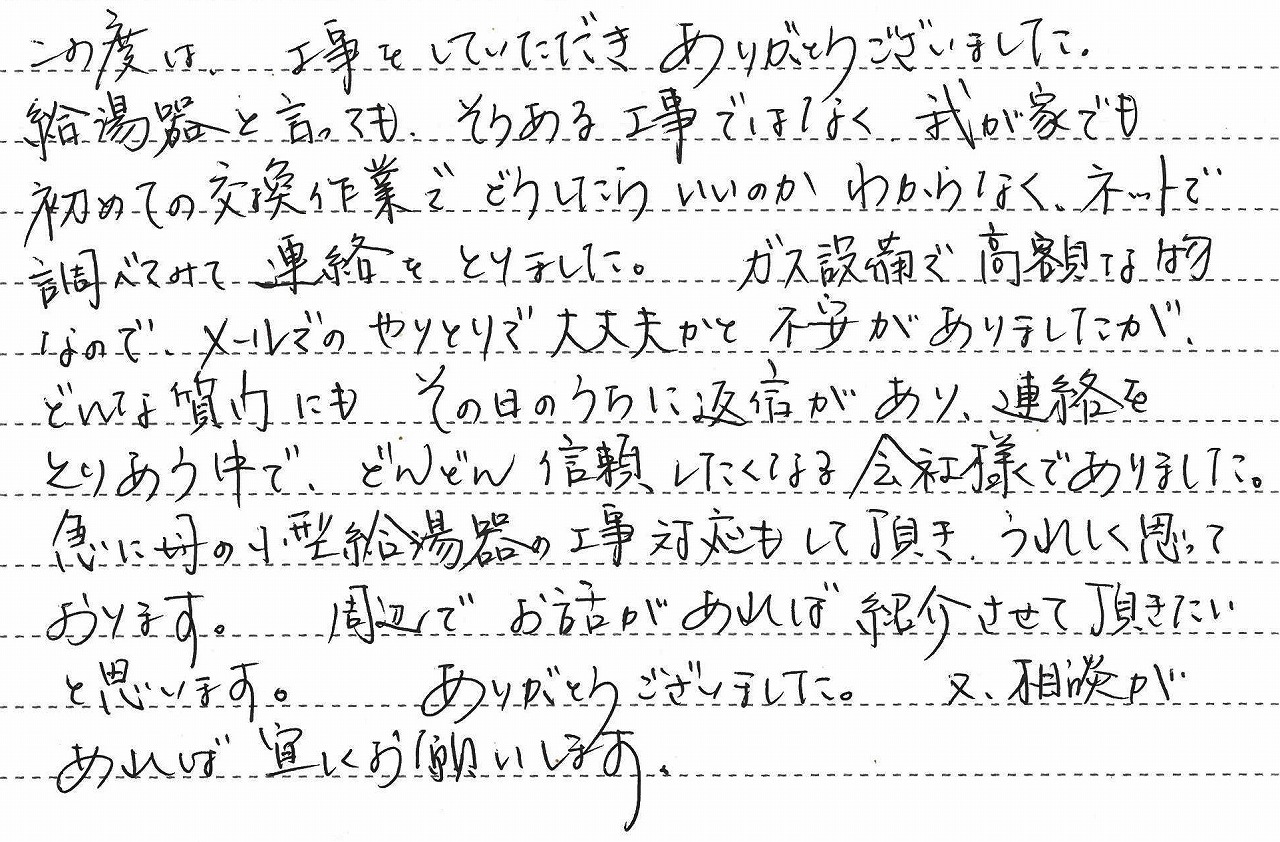 この度は、工事をしていただき ありがとうございました。
給湯器と言っても、そうある工事ではなく、我が家でも
初めての交換作業で どうしたら いいのか わからなく、ネットで
調べてみて 連絡を とりました。 ガス設備で 高額な物
なので、メールでの やりとりで 大丈夫かと 不安が ありましたが、
どんな 質問にも その日のうちに 返信が あり、連絡を
とりあう中で、どんどん 信頼 したくなる 会社様でありました。
急に母の小型給湯器の工事対応もして頂き、うれしく思って
おります。 周辺で お話が あれば 紹介させて 頂きたい
と思います。 ありがとうございました。 又、相談が
あれば 宜しくお願いします。